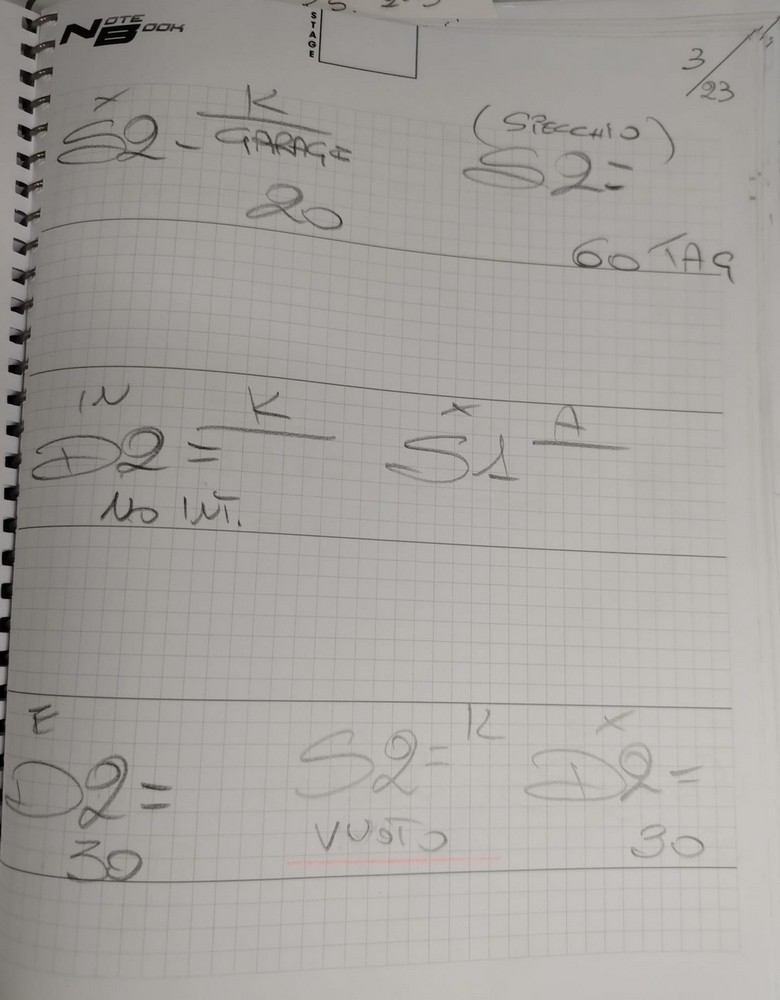 NOTE BOOK
STAGE
3/23
X K
S2 - GARAGE
20
(SPECCHIO)
S2=
60 TAG
IN K
D2=
NO INT.
X A
S1
E
D2=
30
K
S2=
VUOTO
X
D2=
30